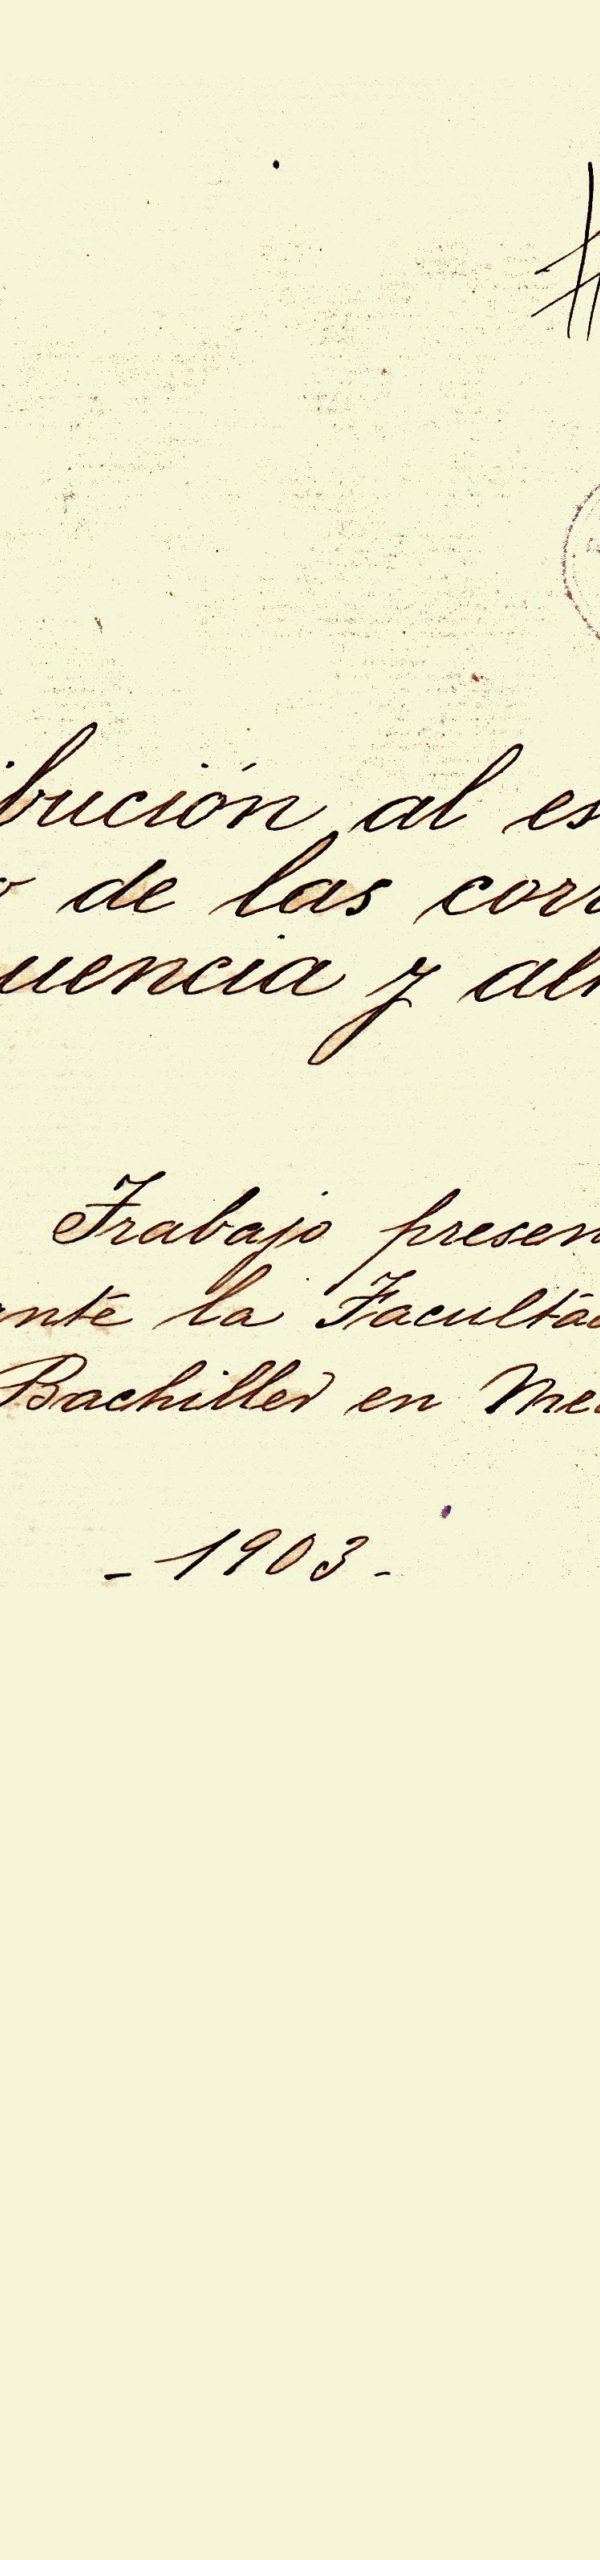 bución al es
de las corr
uencia y al
Trabajo presen
ante la Facultad
Bachiller en Me
- 1903 -